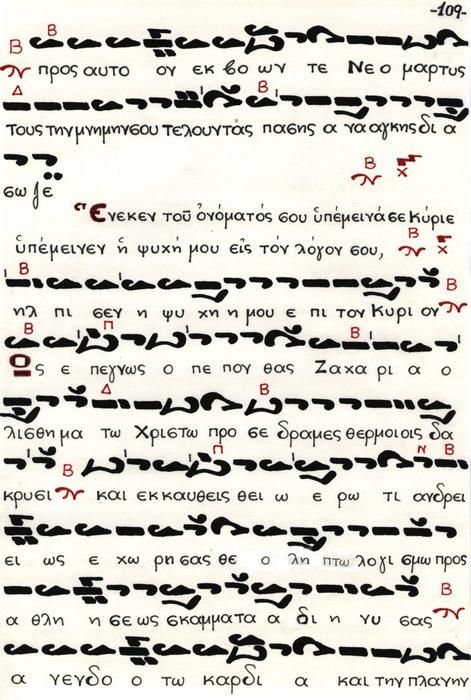 -109-
προς αυτο ον εκ βο ων τε Νε ο μαρτυς
τους την μνημην σου τελουντας πασης α να αγκης δι α
σω ζε
στ Ενεκεν τοῦ ὀνόματός σου ὑπέμεινά σε Κύριε
ὑπέμεινεν ἡ ψυχή μου εἰς τόν λόγον σου,
ηλ πι σεν η ψυ χη η μου ε πι τον Κυρι ον
Ος ε πεγνως ο πε πον θας Ζαχα ρι α ο
λισθη μα τω Χριστω προ σε δραμες θερμοι οις δα
κρυσι και εκ καυθεις θει ω ε ρω τι ανδρει
ει ως ε χω ρη σας θε ο λη πτω λογι σμω προς
α θλη η σε ως σκαμματα α δι η νυ σας
α γενδο ο τω καρδι α και την πλανην